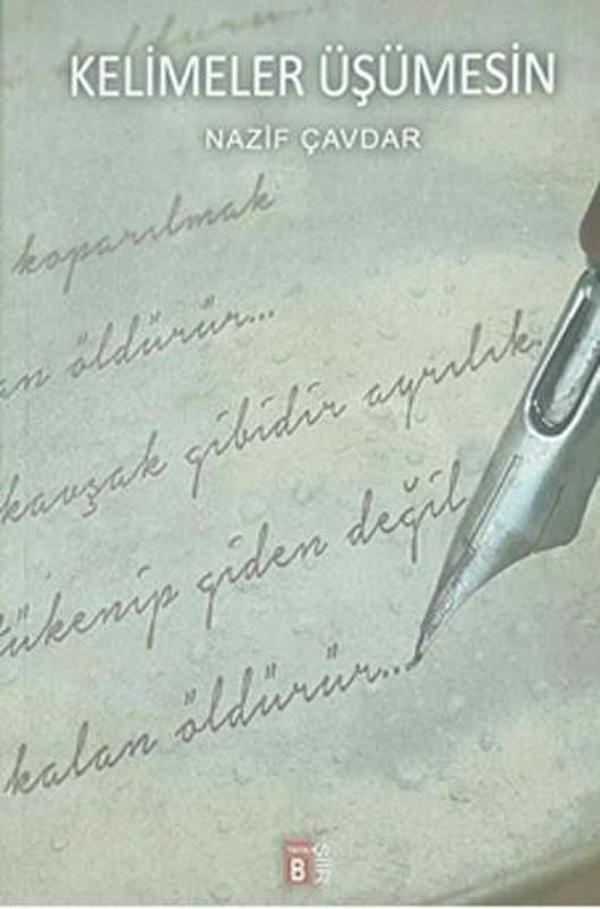 KELİMELER ÜŞÜMESİN
NAZİF ÇAVDAR
koparılmak
an öldürür...
kavşak gibidir ayrılık.
tükenip giden değil
kalan öldürür...
B
ŞİİR